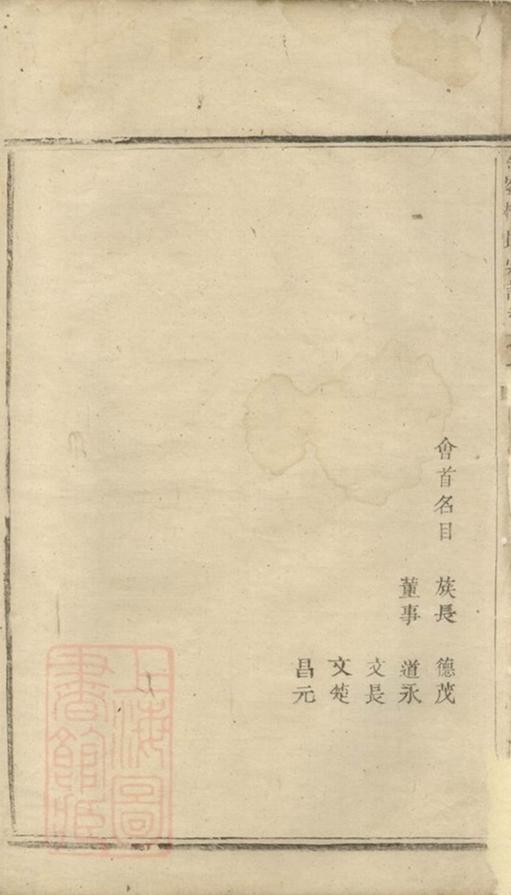 會首名目 族長 德茂
董事 道永
文長
文焚
昌元
上海圖
書館藏